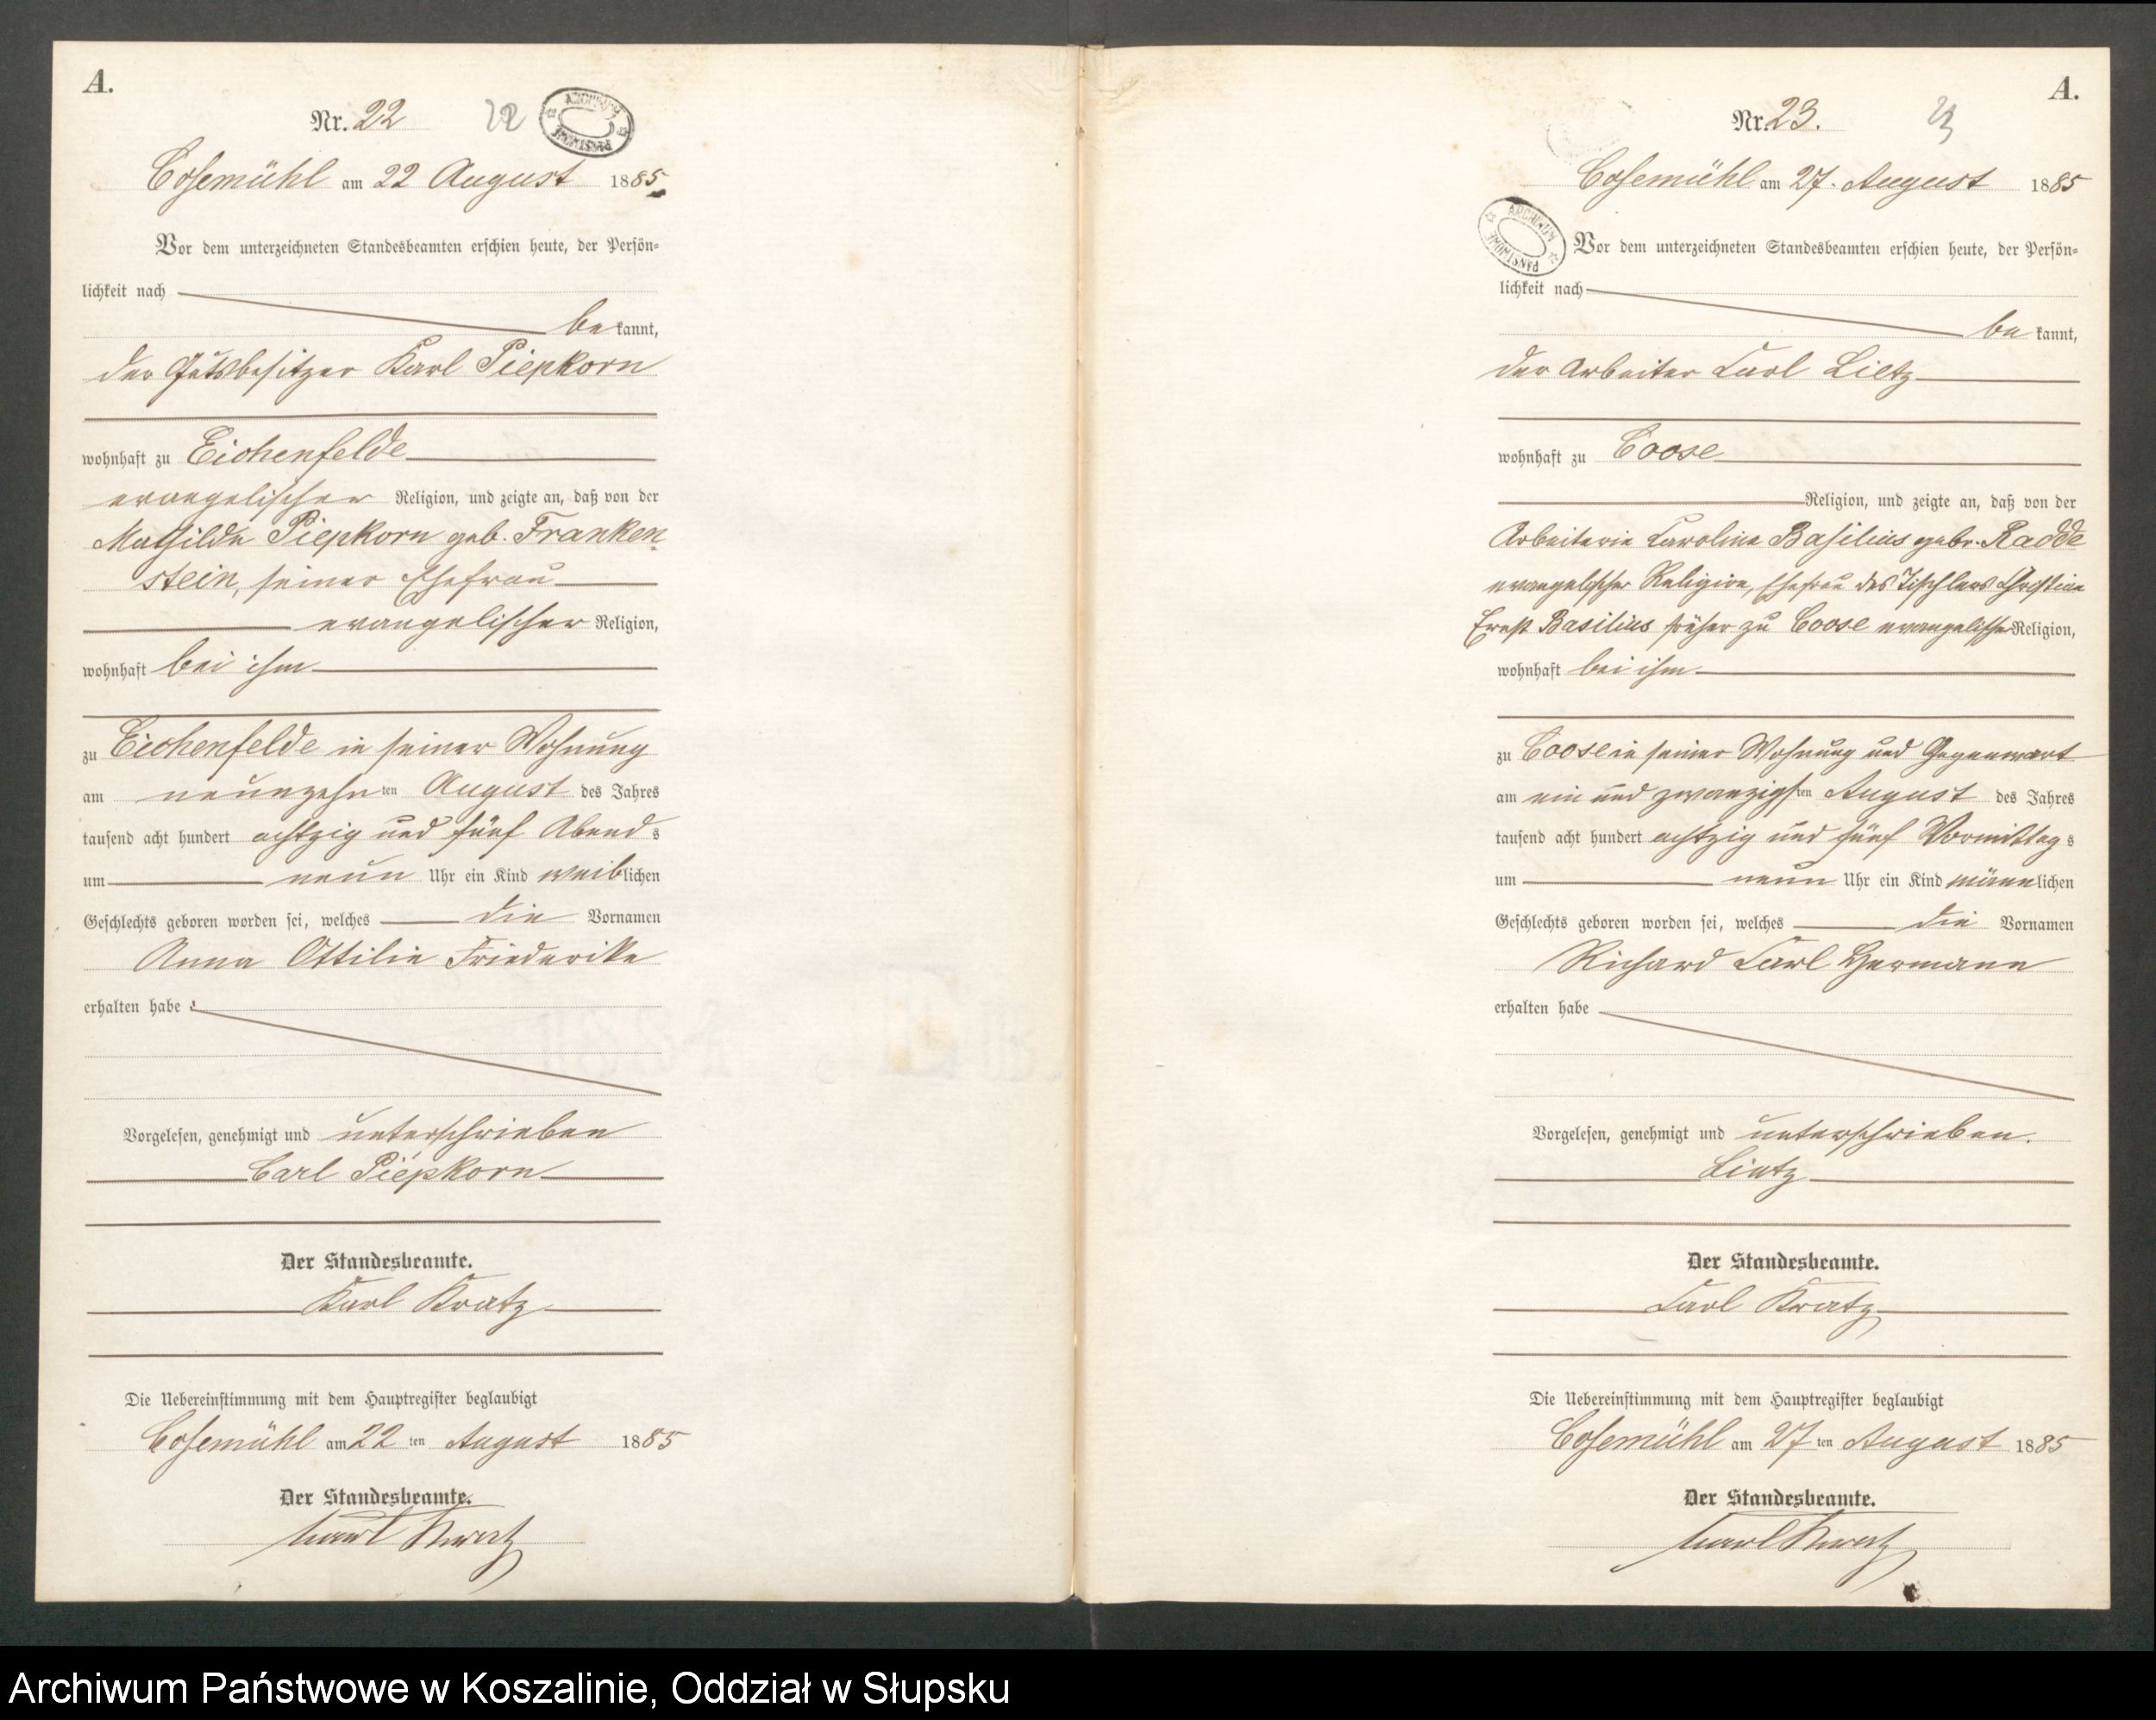 A.
Nr. 22
22
ARCHIWUM PAŃSTWOWE
Cosemühl am 22 August 1885
Vor dem unterzeichneten Standesbeamten erschien heute, der Persön-
lichkeit nach
be kannt,
der Gutsbesitzer Karl Piepkorn
wohnhaft zu Eichenfelde
evangelischer Religion, und zeigte an, daß von der
Mathilde Piepkorn geb. Franken
stein, seiner Ehefrau
evangelischer Religion,
wohnhaft bei ihm
zu Eichenfelde in seiner Wohnung
am neunzehn ten August des Jahres
tausend acht hundert achtzig und fünf Abend s
um neun Uhr ein Kind weiblichen
Geschlechts geboren worden sei, welches die Vornamen
Anna Ottilie Friederike
erhalten habe
Vorgelesen, genehmigt und unterschrieben
Carl Piepkorn
Der Standesbeamte.
Karl Kratz
Die Uebereinstimmung mit dem Hauptregister beglaubigt
Cosemühl am 22 ten August 1885
Der Standesbeamte.
Karl Kratz
A.
Nr. 23.
23
ARCHIWUM PAŃSTWOWE
Cosemühl am 27. August 1885
Vor dem unterzeichneten Standesbeamten erschien heute, der Persön-
lichkeit nach
be kannt,
der Arbeiter Carl Lietz
wohnhaft zu Coose
Religion, und zeigte an, daß von der
Arbeiterin Caroline Basilius gebr. Radde
evangelischer Religion, Ehefrau des Tischlers Christian
Ernst Basilius früher zu Coose evangelischer Religion,
wohnhaft bei ihm
zu Coose in seiner Wohnung und Gegenwart
am ein und zwanzigsten August des Jahres
tausend acht hundert achtzig und fünf Vormittag s
um neun Uhr ein Kind männlichen
Geschlechts geboren worden sei, welches die Vornamen
Richard Carl Hermann
erhalten habe
Vorgelesen, genehmigt und unterschrieben.
Lietz
Der Standesbeamte.
Carl Kratz
Die Uebereinstimmung mit dem Hauptregister beglaubigt
Cosemühl am 27 ten August 1885
Der Standesbeamte.
Karl Kratz
Archiwum Państwowe w Koszalinie, Oddział w Słupsku